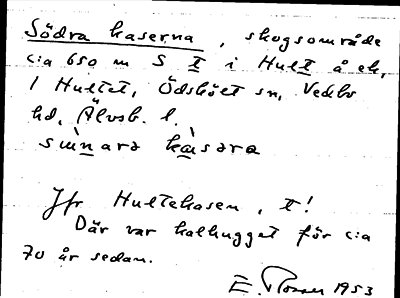 Södra kaserna, skogsområde
c:a 650 m S I i Hult å ek,
1 Hultet, ÖdsköLt sn, Vedbo
hd, Älvsb. l.
sø̀nara kàsara
Jfr Hultekasen, I!
Där var kalhugget för c:a
70 år sedan.
E. 1953